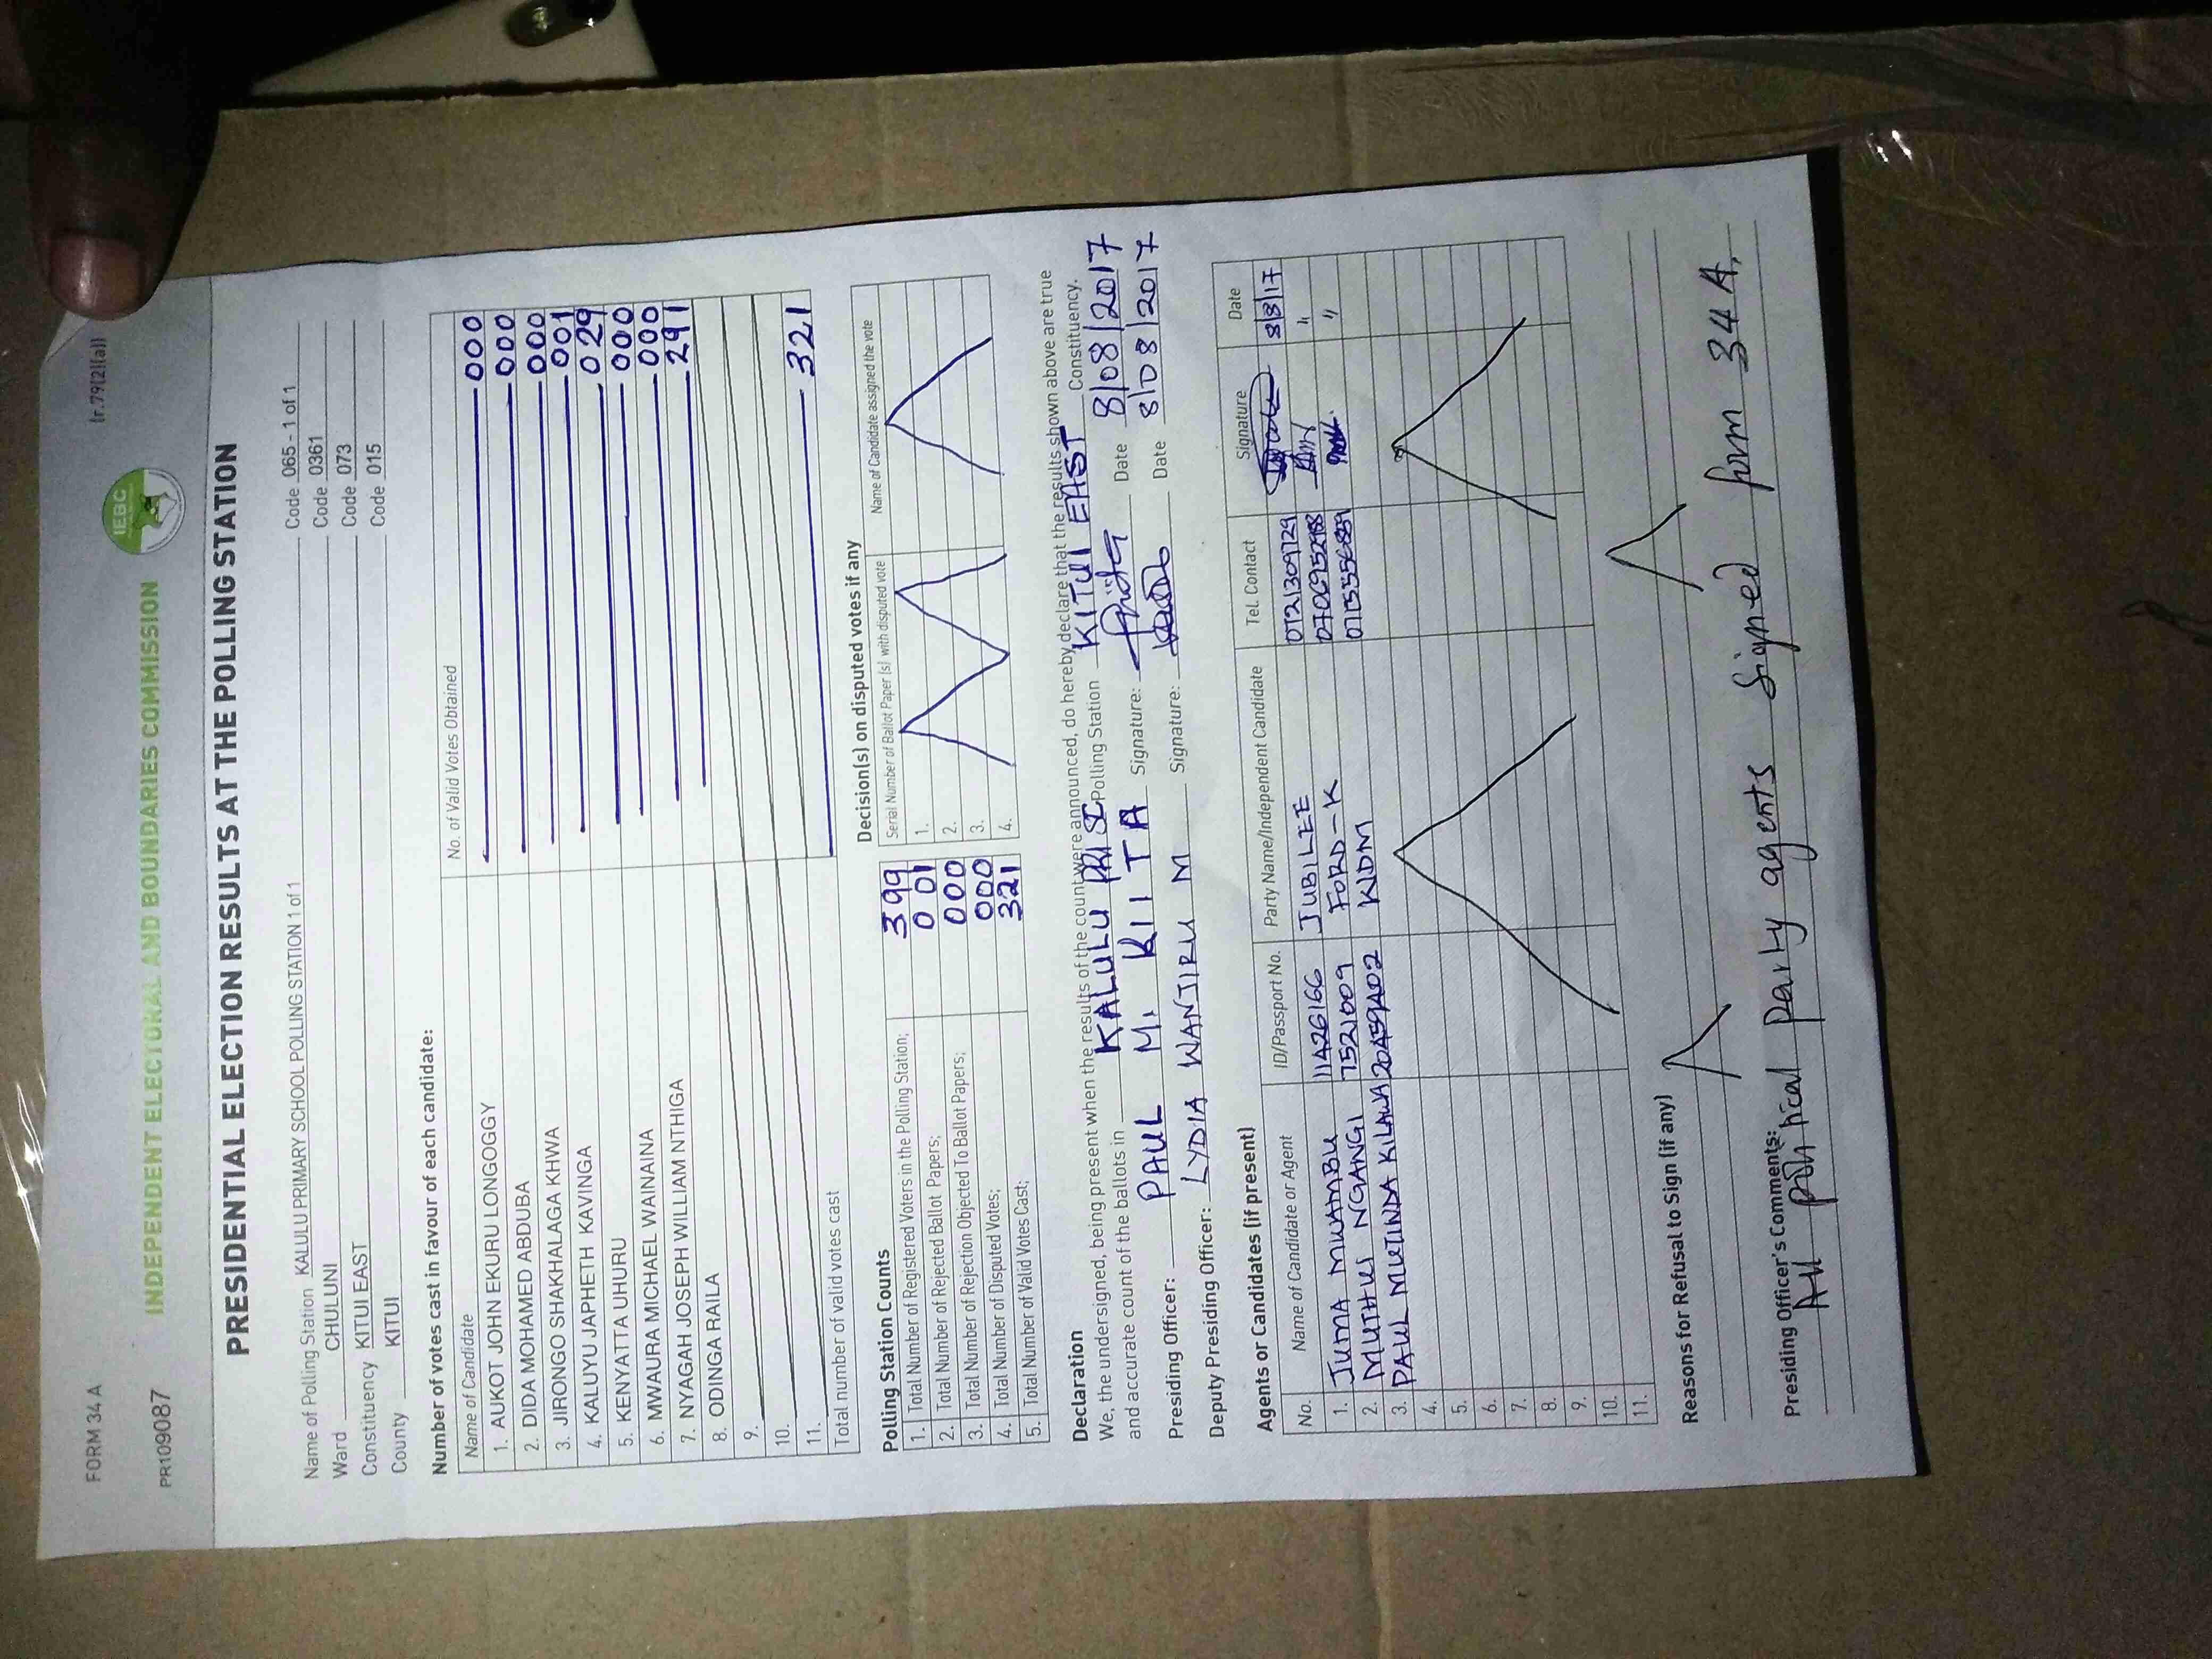 FORM 34 A
(r.79(2)(a))
PR109087
INDEPENDENT ELECTORAL AND BOUNDARIES COMMISSION
IEBC
PRESIDENTIAL ELECTION RESULTS AT THE POLLING STATION
Name of Polling Station KALULU PRIMARY SCHOOL POLLING STATION 1 of 1 Code 065 - 1 of 1
Ward CHULUNI Code 0361
Constituency KITUI EAST Code 073
County KITUI Code 015
Number of votes cast in favour of each candidate:
Name of Candidate No. of Valid Votes Obtained
1. AUKOT JOHN EKURU LONGOGGY 000
2. DIDA MOHAMED ABDUBA 000
3. JIRONGO SHAKHALAGA KHWA 000
4. KALUYU JAPHETH KAVINGA 001
5. KENYATTA UHURU 029
6. MWAURA MICHAEL WAINAINA 000
7. NYAGAH JOSEPH WILLIAM NTHIGA 000
8. ODINGA RAILA 291
9.
10.
11.
Total number of valid votes cast 321
Polling Station Counts
1. Total Number of Registered Voters in the Polling Station; 399
2. Total Number of Rejected Ballot Papers; 001
3. Total Number of Rejection Objected To Ballot Papers; 000
4. Total Number of Disputed Votes; 000
5. Total Number of Valid Votes Cast; 321
Decision(s) on disputed votes if any
Serial Number of Ballot Paper (s) with disputed vote Name of Candidate assigned the vote
1.
2.
3.
4.
Declaration
We, the undersigned, being present when the results of the count were announced, do hereby declare that the results shown above are true
and accurate count of the ballots in KALULU PRI SC Polling Station KITUI EAST Constituency.
Presiding Officer: PAUL M. KIITA Signature: Date 8/08/2017
Deputy Presiding Officer: LYDIA WANJIRU M Signature: Date 8/08/2017
Agents or Candidates (if present)
No. Name of Candidate or Agent ID/Passport No. Party Name/Independent Candidate Tel. Contact Signature Date
1. JUMA MWAMBU 11426166 JUBILEE 0721309729 8/8/17
2. MUTHUI NGANGI FORD-K "
3. PAUL MUTINDA "
4.
5.
6.
7.
8.
9.
10.
11.
Reasons for Refusal to Sign (if any)
Presiding Officer's Comments:
All political party agents signed form 34 A.